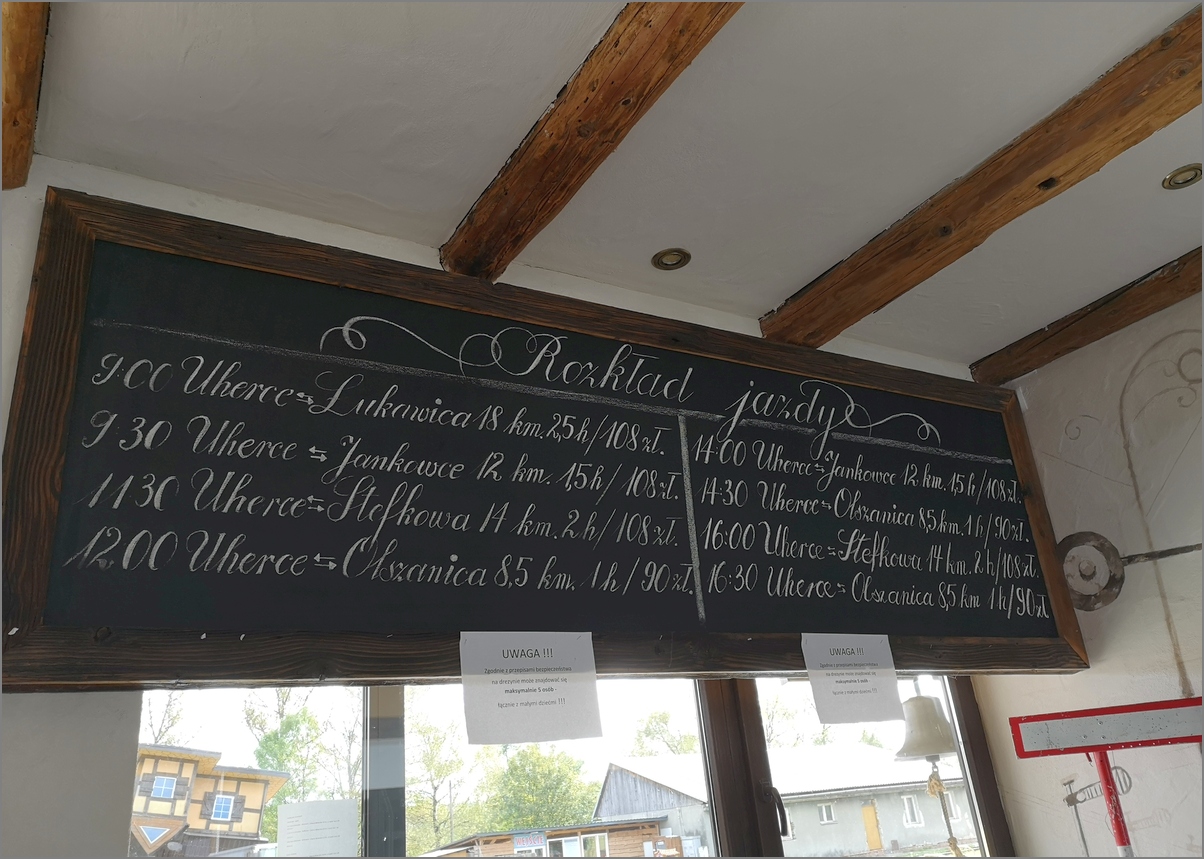 Rozkład jazdy
9:00 Uherce ⇆ Łukawica 18 km. 2,5h/108 zł.
9:30 Uherce ⇆ Jankowce 12 km. 1,5h/108 zł.
11:30 Uherce ⇆ Stefkowa 14 km. 2h/108 zł.
12:00 Uherce ⇆ Olszanica 8,5 km. 1h/90 zł.
14:00 Uherce ⇆ Jankowce 12 km. 1,5h/108 zł.
14:30 Uherce ⇆ Olszanica 8,5 km. 1h/90 zł.
16:00 Uherce ⇆ Stefkowa 14 km. 2h/108 zł.
16:30 Uherce ⇆ Olszanica 8,5 km 1h/90 zł
UWAGA !!!
Zgodnie z przepisami bezpieczeństwa
na drezynie może znajdować się
maksymalnie 5 osób -
łącznie z małymi dziećmi !!!
UWAGA !!!
Zgodnie z przepisami bezpieczeństwa
na drezynie może znajdować się
maksymalnie 5 osób -
łącznie z małymi dziećmi !!!